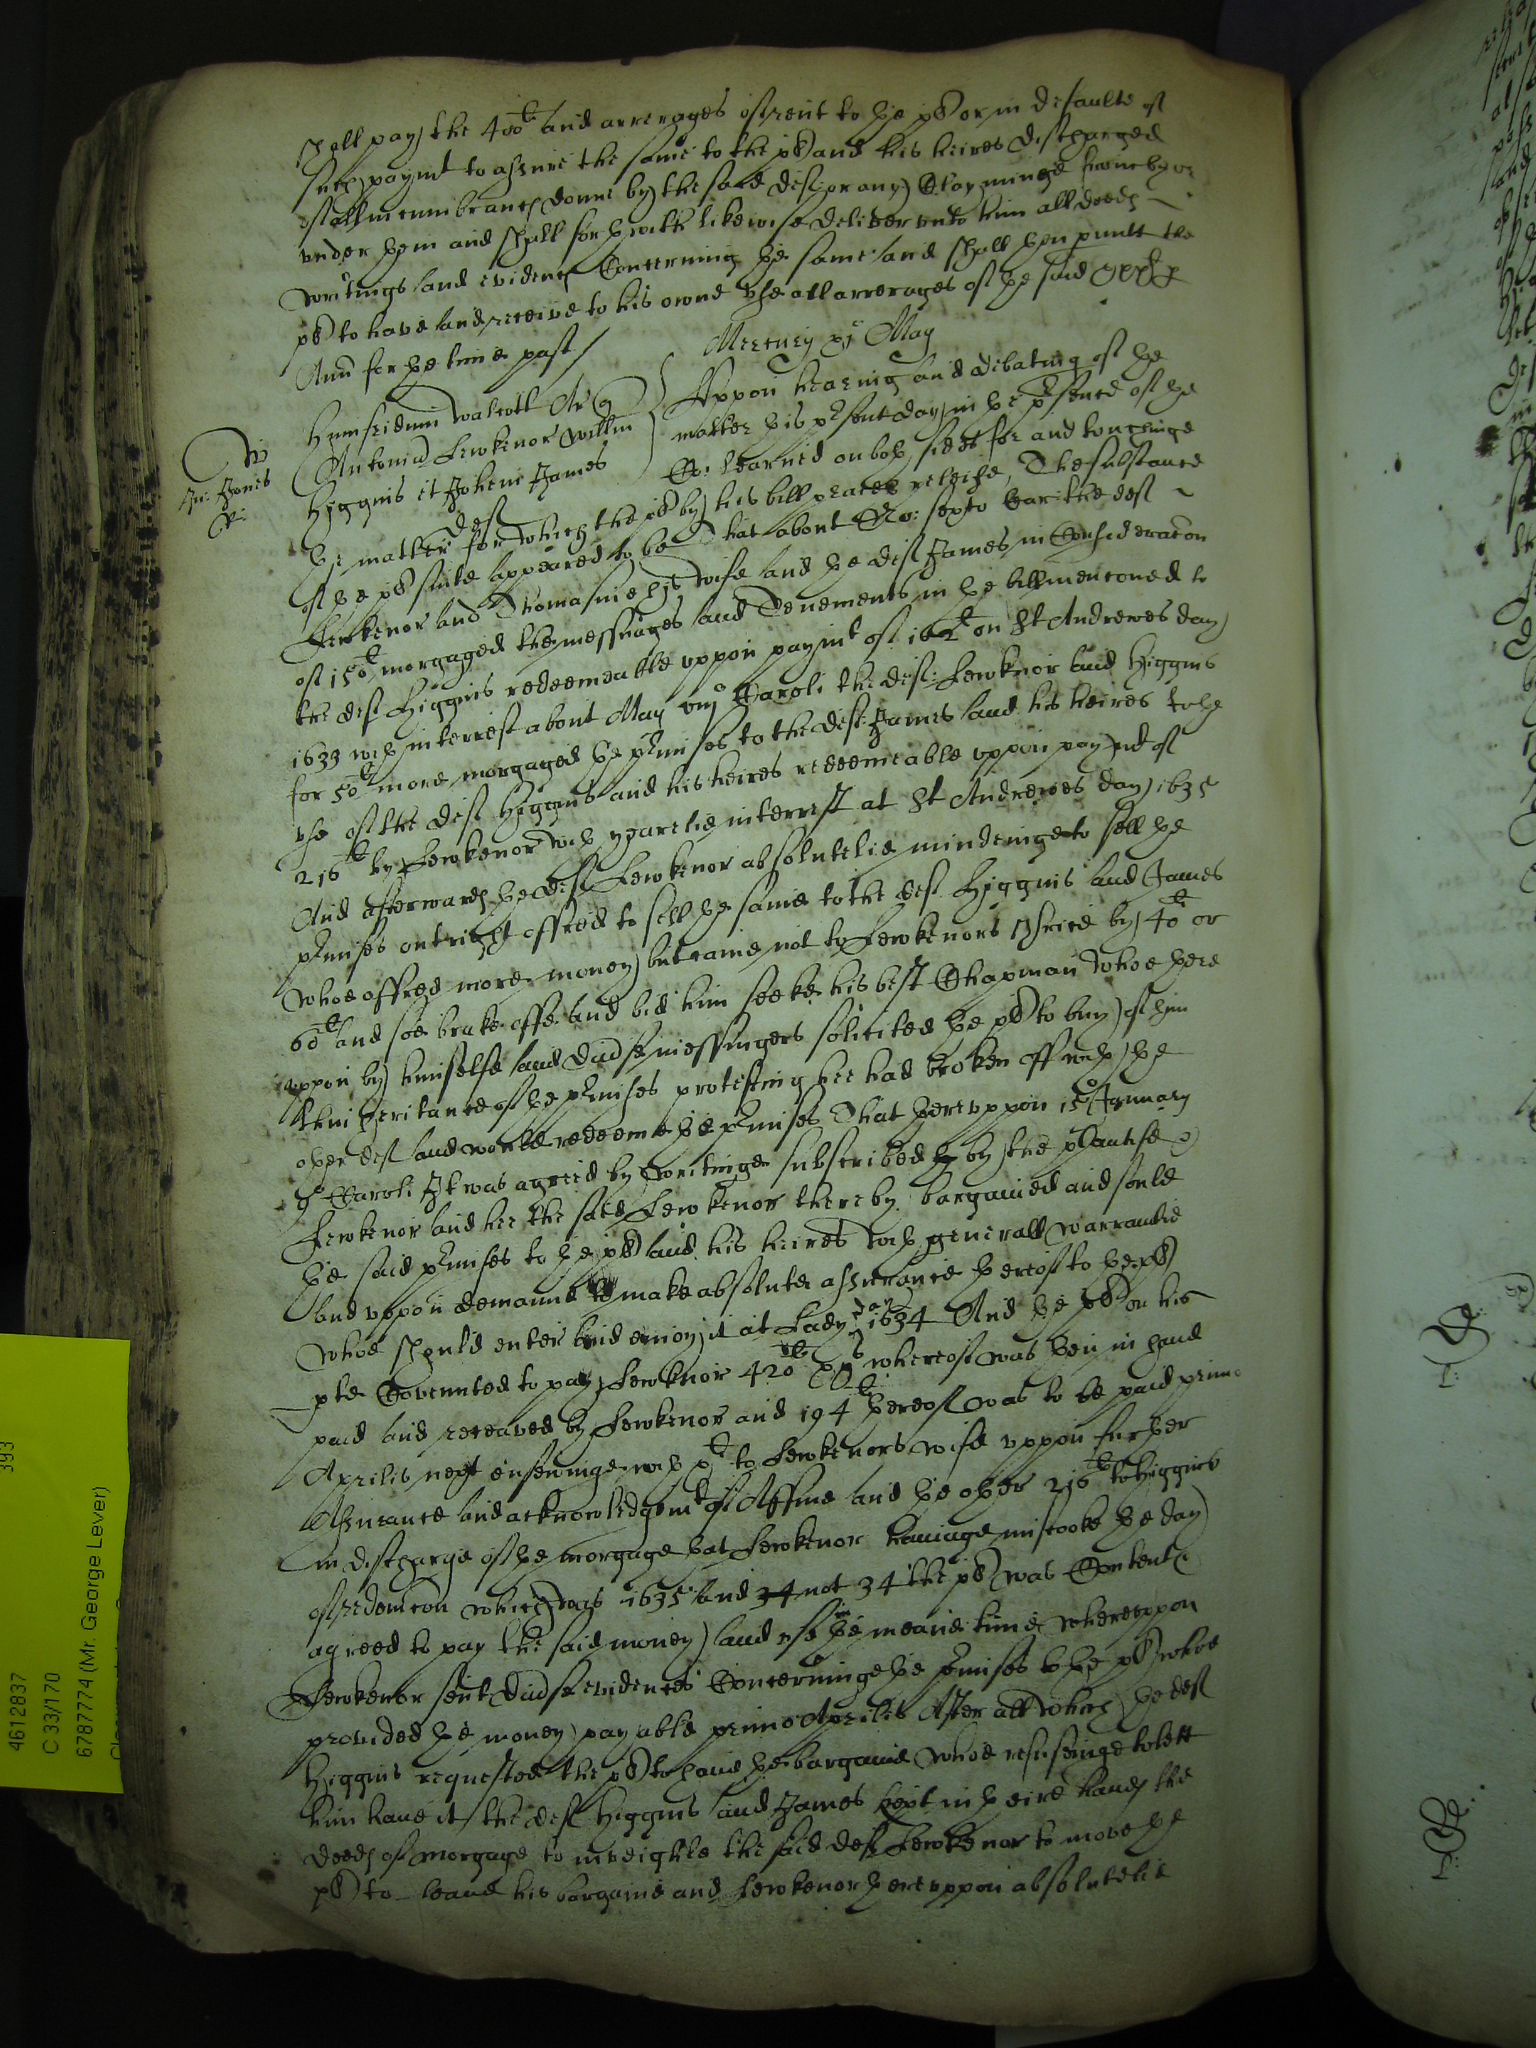 shall pay the 400li and arrerages of rent to þe pl or in defaulte of
such paymt to assure the same to the pl and his heires discharged
of all incumbrances donne by the said def or any Clayminge from by or
under þem and shall forþwith likewise deliver unto him all deeds
writings and evidences Concerning þe same and shall þen permitt the
pl to have and receive to his owne use all arrerages of þe said
Ann for þe time past /
Mercurij May
Humfridum Walcott Ar
Antoniū Lewkenor Willm
Higgins et Johem James
def
Uppon hearing and debating of þe
matter þis psent day in þe psence of þe
Co: learned on boþ sides for and touchinge
Jn: Jones
R:
þe matter for which the pl by his bill praies releife, The substance
of þe pl suite appeared to be That about No: sexto Car: the def
Lewkenor and Thomasine his wife and þe def James in Consideracon
of 150li morgaged the messuages and Tenements in þe bill mencioned to
the def Higgins redeemable uppon paymt of 162li on St Andrewes day
1633 wch interrest about May viijo Caroli the def: Lewknor and Higgins
for 50li more morgaged þe pmises to the def: James and his heires to þe
use of the def Higgins and his heires redeemeable uppon paymt of
216li by Lewkenor wþ yearelie interrest at St Andrewes day 1635
And afterwards þe def Lewkenor absolutelie mindeinge to sell þe
pmises outright offred to sell þe same to the def Higgins and James
whoe offred more money but came not to Lewkenors price by 40li or
60li and soe brake offe and bid him seeke his best Chapman whoe þere
uppon by himselfe and divse messingers solicited þe pl to buy of him
theinheritance of þe pmises protesting hee had broken off wþ þe
oþer def and would redeeme þe pmises That þereuppon 15o January
9o Caroli It was agreed by writinge subscribed by the plantife
Lewkenor and hee the said Lewkenor thereby bargained and sould
þe said pmises to þe pl and his heires wþ generall warrantie
and uppon demaund to make absolute assurance þereof to þe pl
whoe should enter and enioy it at Lady day 1634 And þe pl on his
pte Covennted to pay Lewknor 420li whereof was þen in hand
paid and receaved by Lewkenor and 194li þereof was to be paid primo
Aprilis next ensewinge wþ to Lewkenors wife uppon furþer
Assurance and acknowledgemt of A ffine and þe oþer 216li to Higgins
in discharge of þe morgage þat Lewkenor haveinge mistooke þe day
of redemcon which was 1635 and not 34 the pl was Contente
agreed to pay the said money and use in þe meane time whereuppon
Lewkenor sent divse evidences Concerninge þe pmises to þe pl whoe
provided þe money payable primo Aprilis After all which þe def
Higgins requested the pl to have þe bargaine whoe refuseinge to lett
him have it the def Higgins and James kept in þeire hands the
deeds of morgage to inveighle the said def Lewkenor to move þe
pl to leave his bargaine and Lewkenor þereuppon absolutelie
393
4612837
C 33/170
6787774 (Mr. George Lever)